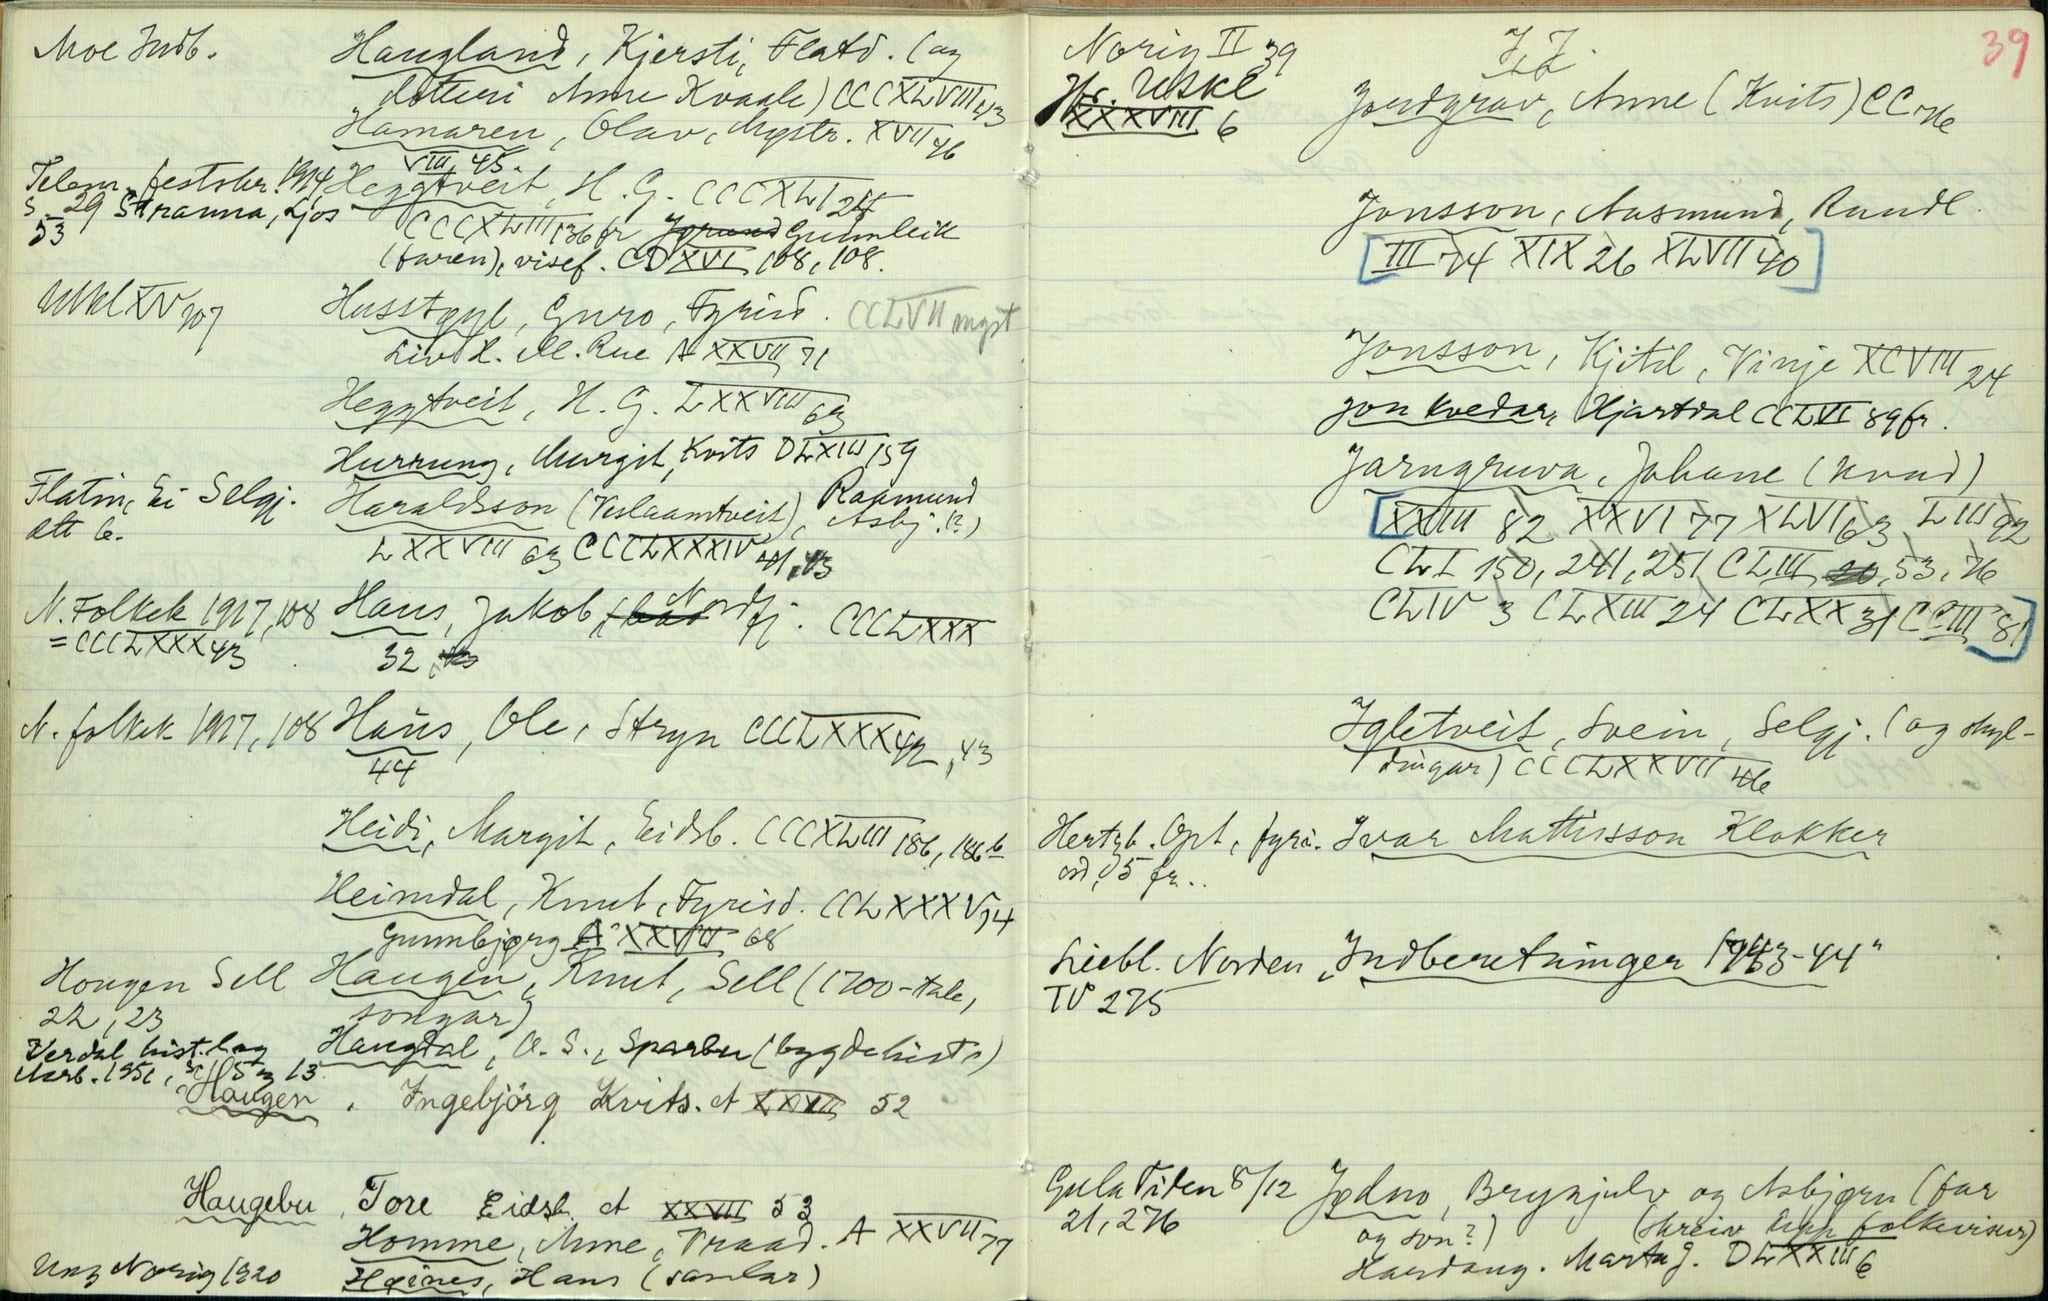 Moe Indb. Haugland, Kjersti, Flatd. (og
dotteri Anne Kvaale) CCCXLVIII 43
Hamaren, Olav, Mystr. XVII 46
VIII, 45.
Telem. festskr. 1914 Heggtveit, H. G. CCCXLI 24
s. 29 Stranna, Ljos CCCXLIII 136 fr Gumleik
53 (faren), visef. CDXVI 108, 108.
UkklXV 107 Husstøyl, Guro, Fyrisd. CCLVII mgst
Liv H. M. Rue A XXVII 71
Heggtveit, H. G. LXXVIII 63
Hurrung, Margit, Kvits DLXIII 159
Flatin, Ei Selgj. Haraldsson (Veslaamtveit), Raamund
ått 6. Asbj. (?)
LXXVIII 63 CCCLXXXIV 41, 43
N. Folkek 1917, 108 Haus, Jakob, Nordfj. CCCLXXX
= CCCLXXX 43 32
N. folkek 1917, 108 Haus, Ole, Stryn CCCLXXX 42, 43
44
Heidi, Margit, Eidsb. CCCXLIII 186, 186 b
Heimdal, Knut, Fyrisd. CCLXXXV 74
Gunnbjørg A XXVII 68
Hougen Sell Haugen, Knut, Sell (1700-tale,
22, 23 songar)
Verdal hist.lag Haugdal, O. S., Sparbu (bygdehist.)
Aarb. 1951, s. 115 og 13
Haugen, Ingebjörg Kvits. A XXVII 52
Haugebu, Tore Eidsb. A XXVII 53
Homme, Anne, Vraad. A XXVII 77
Ung Norig 1920 Høines, Hans (samlar)
39
Norig II 39 I, J.
Hs. Uskl
XXXVIII 6 Jordgrav, Anne (Kvits) CC 76
Jonsson, Aasmund, Raudl.
[III 74 XIX 26 XLVII 40]
Jonsson, Kjitil, Vinje XCVIII 24
Jon Kvedar, Hjartdal CCLVI 89 fr.
Jarngruva, Johane (kvad)
[XXIII 82 XXVI 77 XLVI 63, LIII 92
CLI 150, 241, 251 CLIII, 53, 76
CLIV 3 CLXIII 24 CLXX 31 CCIII 81]
Igletveit, Svein, Selgj. (og skyl-
dingar) CCCLXXVII 46
Hertzb. Opt, fyri. Ivar Mattisson Klokker
ord, 5 fr..
Liebl. Norden „Indberetninger 1743-44"
IV 275
Gula Tiden 8/12 Jødno, Brynjulv og Asbjørn (far
21, 276 og son?) (skreiv upp folkeviser)
Hardang. Marta J. DLXXIII 6